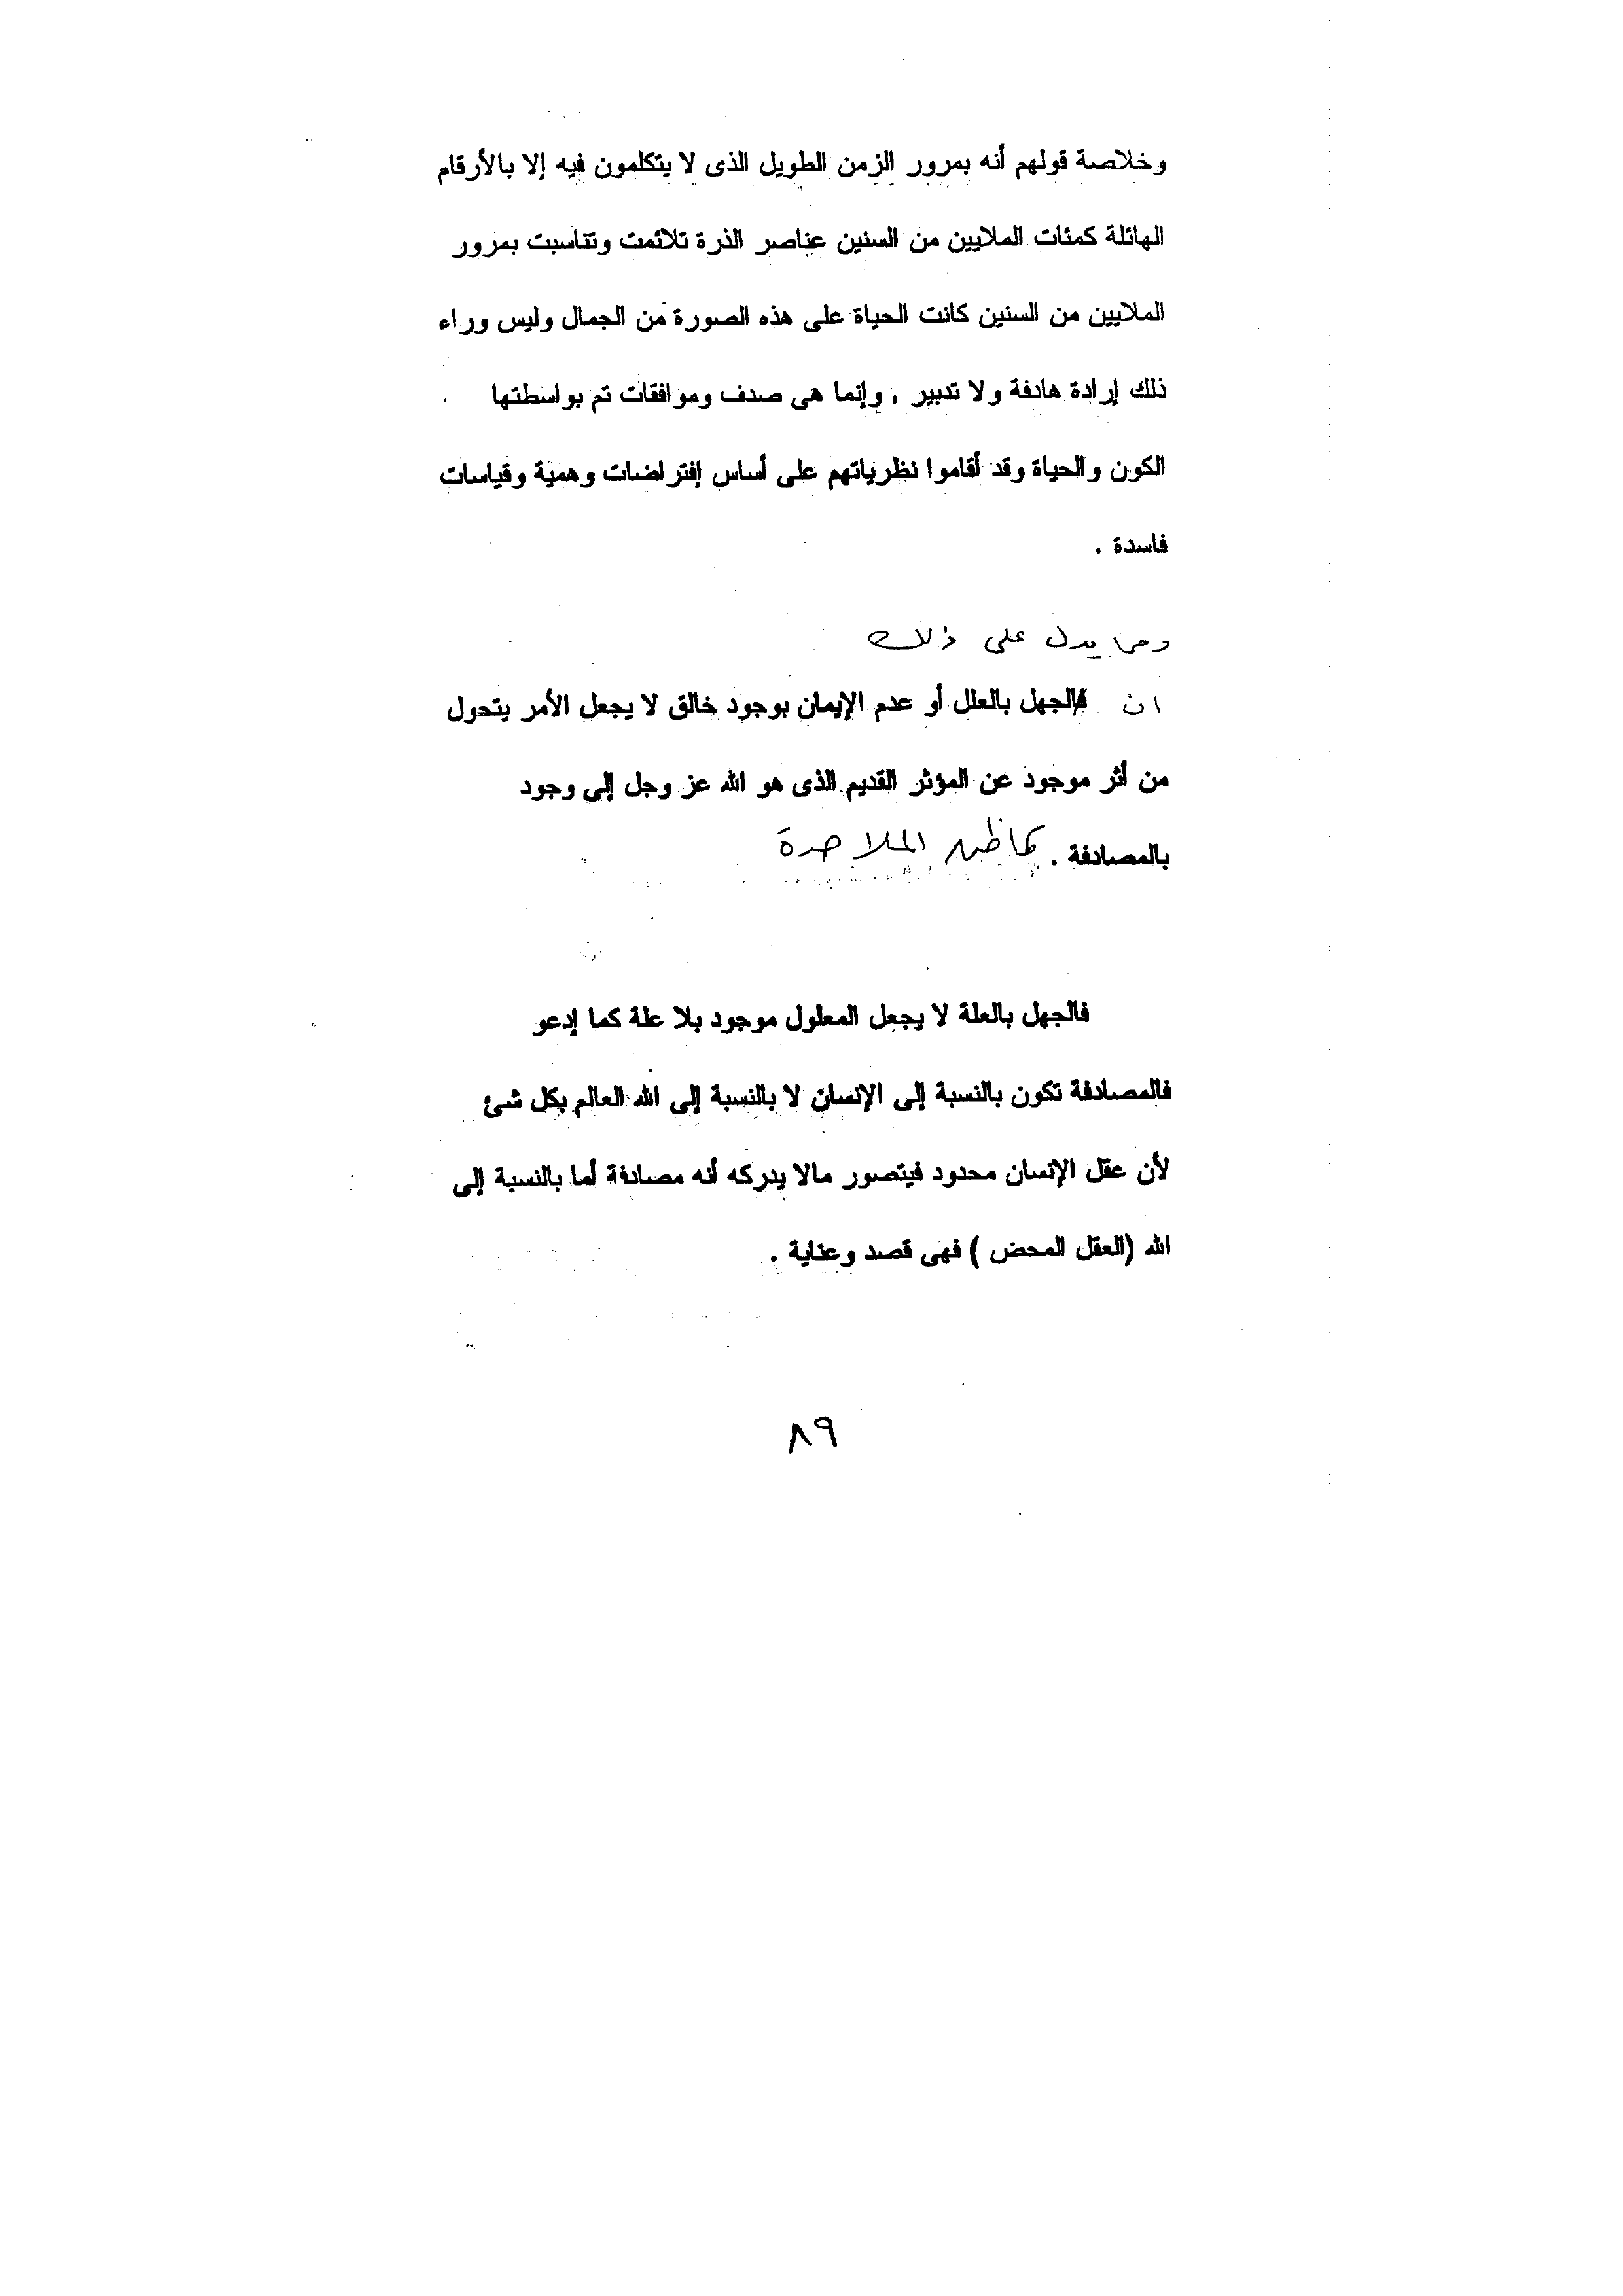 وخلاصة قولهم أنه بمرور الزمن الطويل الذى لا يتكلمون فيه إلا بالأرقام
الهائلة كمئات الملايين من السنين عناصر الذرة تلائمت وتناسبت بمرور
الملايين من السنين كانت الحياة على هذه الصورة من الجمال وليس وراء
ذلك إرادة هادفة ولا تدبير , وإنما هى صدف وموافقات تم بواسطتها
الكون والحياة وقد أقاموا نظرياتهم على أساس إفتراضات وهمية وقياسات
فاسدة .
ومما يدل على ذلك
ان الجهل بالعلل أو عدم الإيمان بوجود خالق لا يجعل الأمر يتحول
من أثر موجود عن المؤثر القديم الذى هو الله عز وجل إلى وجود
بالمصادفة . كما الملاحدة
فالجهل بالعلة لا يجعل المعلول موجود بلا علة كما إدعو
فالمصادفة تكون بالنسبة إلى الإنسان لا بالنسبة إلى الله العالم بكل شئ
لأن عقل الإنسان محدود فيتصور مالا يدركه أنه مصادفة أما بالنسبة إلى
الله (العقل المحض ) فهى قصد وعناية .
٨٩